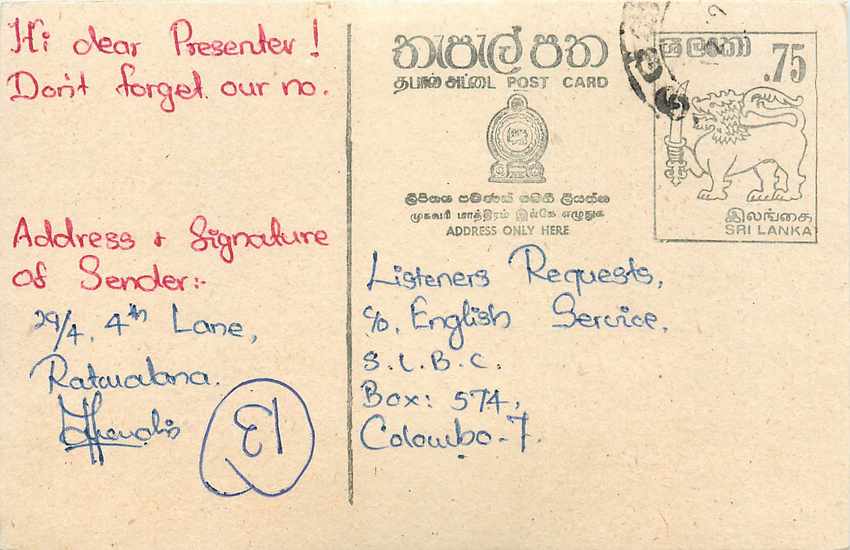 Hi dear Presenter !
Don't forget our no.
Address & Signature
of Sender:-
29/4, 4th Lane,
Ratmalana.
තැපැල් පත
தபால் அட்டை POST CARD
ලිපිනය පමණක් මෙහි ලියන්න
முகவரி மாத்திரம் இங்கே எழுதுக
ADDRESS ONLY HERE
ශ්‍රී ලංකා
.75
இலங்கை
SRI LANKA
Listeners Requests,
c/o, English Service,
S.L.B.C.
Box: 574,
Colombo-7.